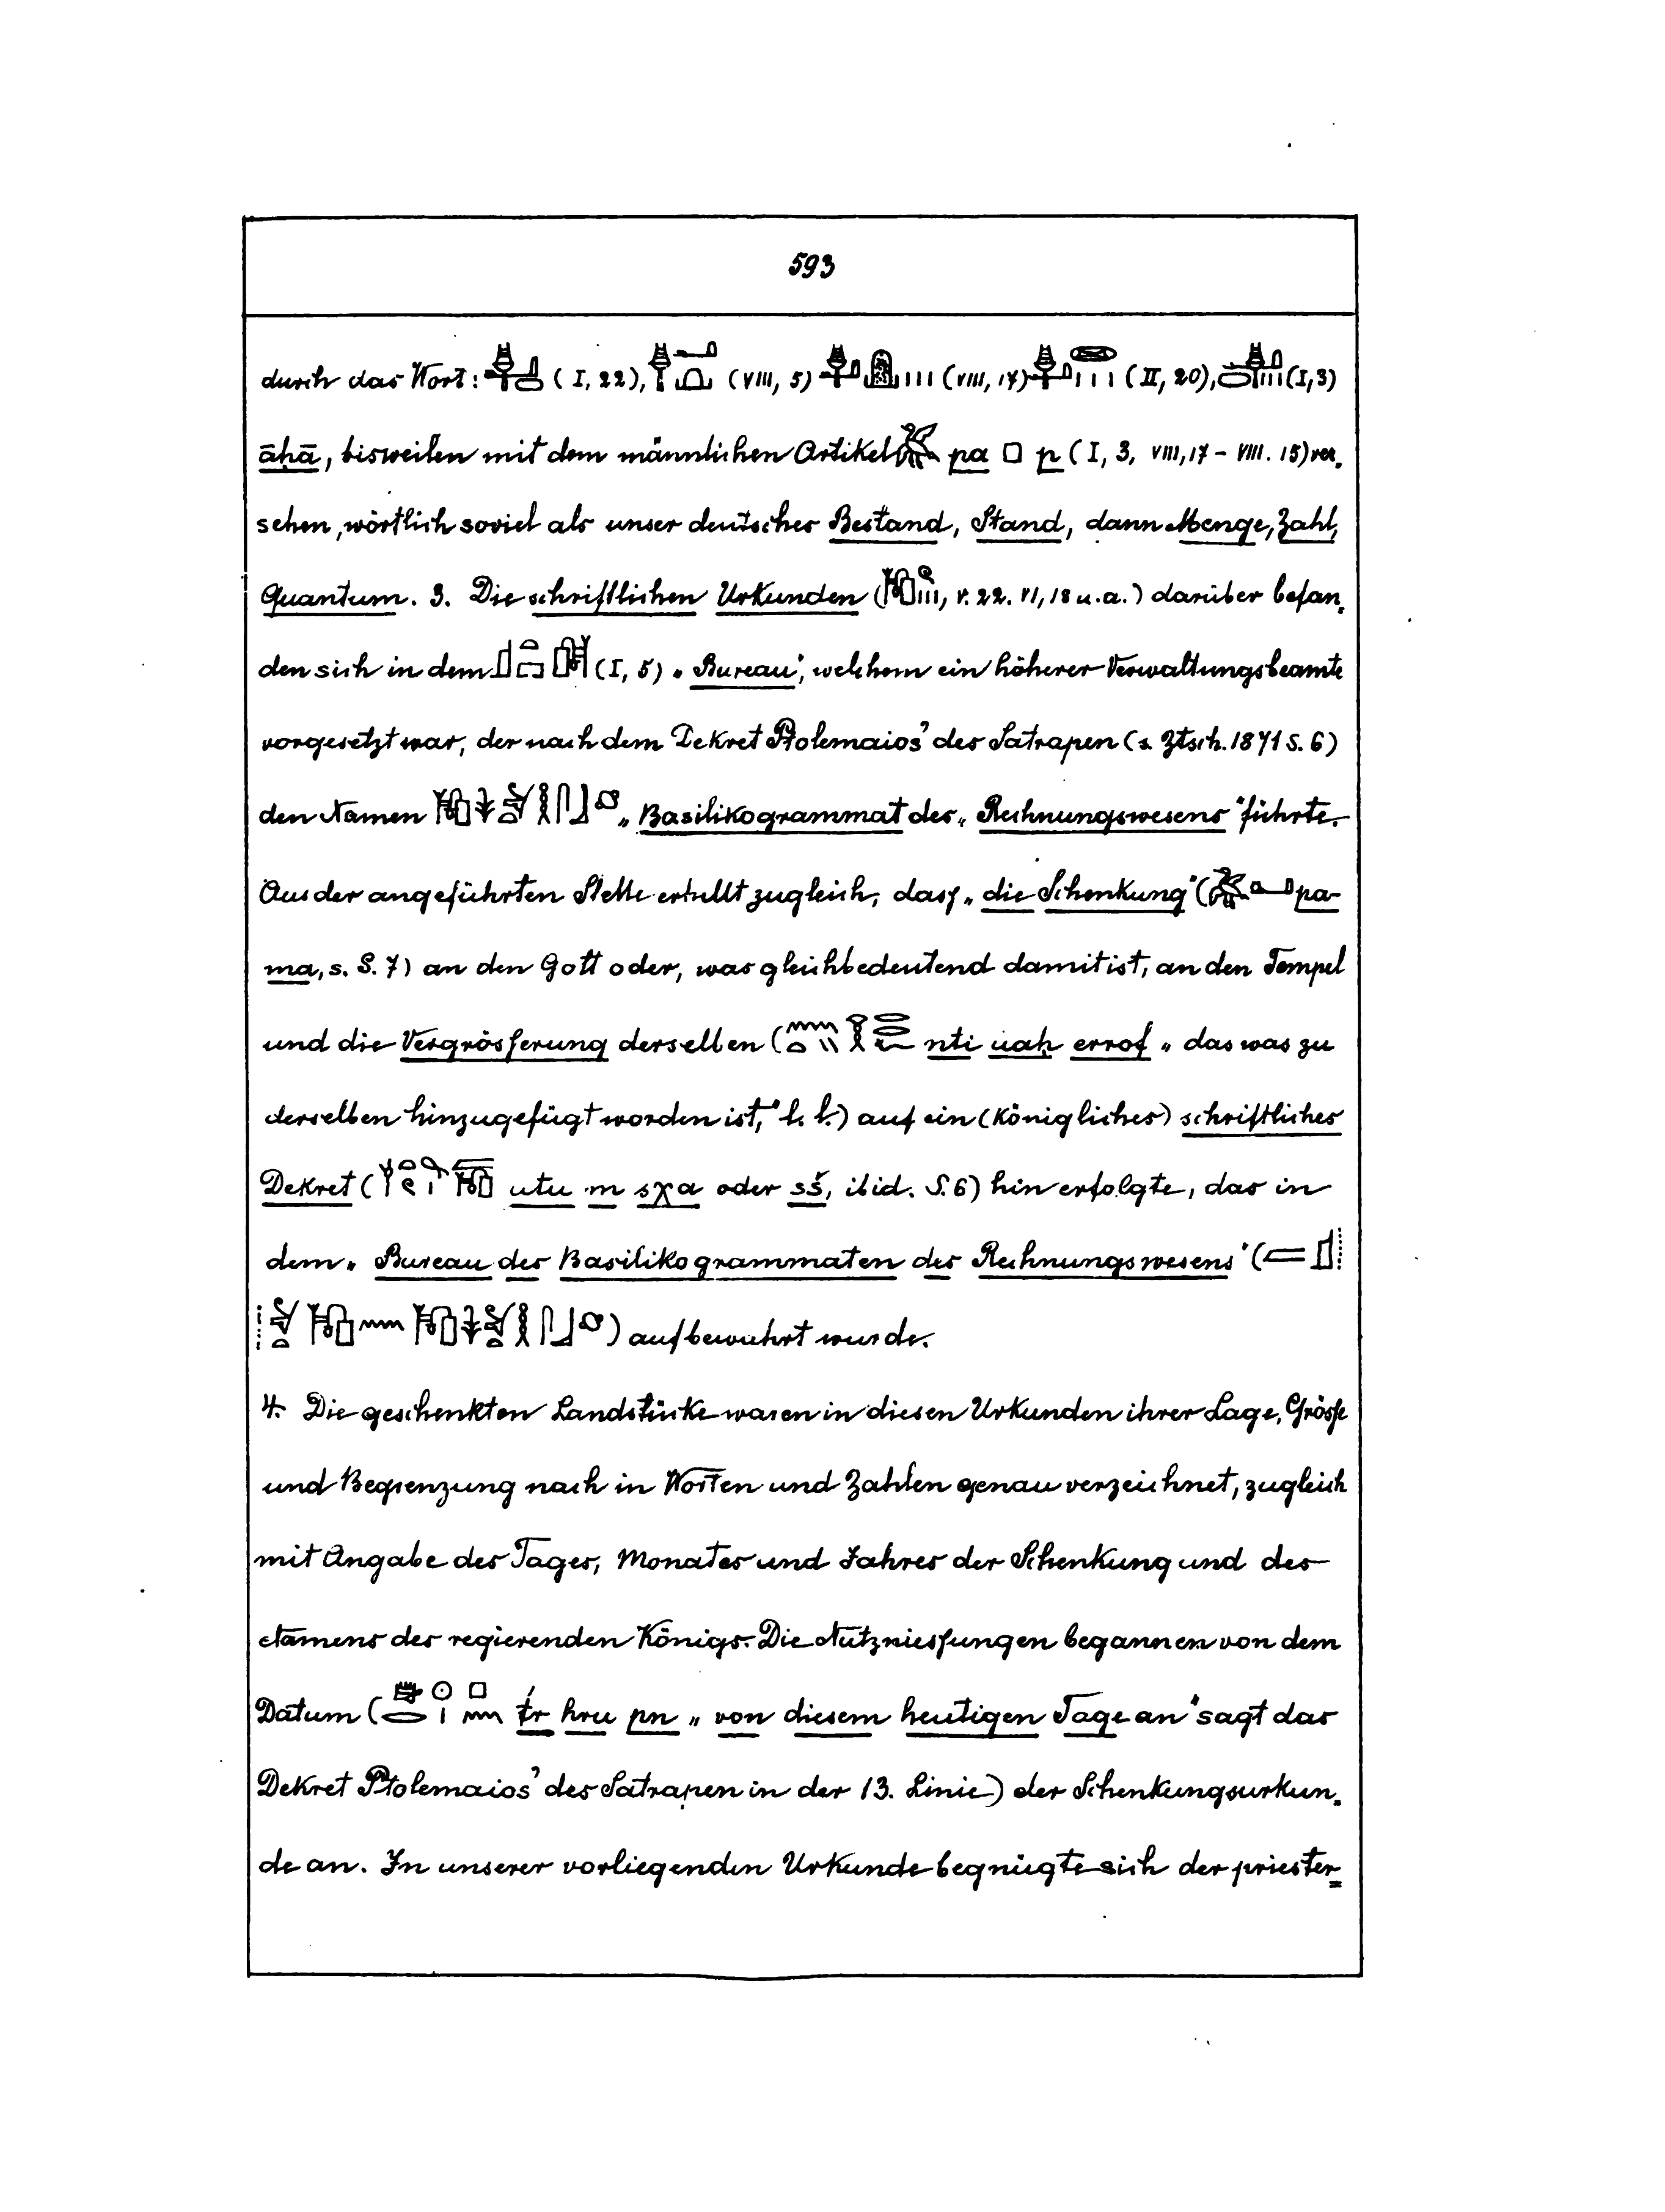 593
durch das Wort: (I, 22), (VIII, 5) (VIII, 17) (II, 20), (I, 3)
āḥā, bisweilen mit dem männlichen Artikel pa p (I, 3, VIII, 17 – VIII. 15) ver-
sehen, wörtlich soviel als unser deutsches Bestand, Stand, dann Menge, Zahl,
Quantum. 3. Die schriftlichen Urkunden (, V. 22. VI, 18 u. a.) darüber befan-
den sich in dem (I, 5) „Bureau", welchem ein höherer Verwaltungsbeamte
vorgesetzt war, der nach dem Dekret Ptolemaios' des Satrapen (s. Ztsch. 1871 S. 6)
den Namen „Basilikogrammat des „Rechnungswesens" führte.
Aus der angeführten Stelle erhellt zugleich, dass „die Schenkung" ( pa-
ma, s. S. 7) an den Gott oder, was gleichbedeutend damit ist, an den Tempel
und die Vergrösserung derselben ( nti uaḥ errof „das was zu
derselben hinzugefügt worden ist," l. l.) auf ein (Königliches) schriftliches
Dekret ( utu m sχa oder sš, ibid. S. 6) hin erfolgte, das in
dem „Bureau des Basilikogrammaten des Rechnungswesens" (
) aufbewahrt wurde.
4. Die geschenkten Landstücke waren in diesen Urkunden ihrer Lage, Grösse
und Begrenzung nach in Worten und Zahlen genau verzeichnet, zugleich
mit Angabe des Tages, Monates und Jahres der Schenkung und des
Namens des regierenden Königs. Die Nutzniessungen begannen von dem
Datum ( t́r hru pn „von diesem heutigen Tage an" sagt das
Dekret Ptolemaios' des Satrapen in der 13. Linie) der Schenkungsurkun-
de an. In unserer vorliegenden Urkunde begnügte sich der priester-